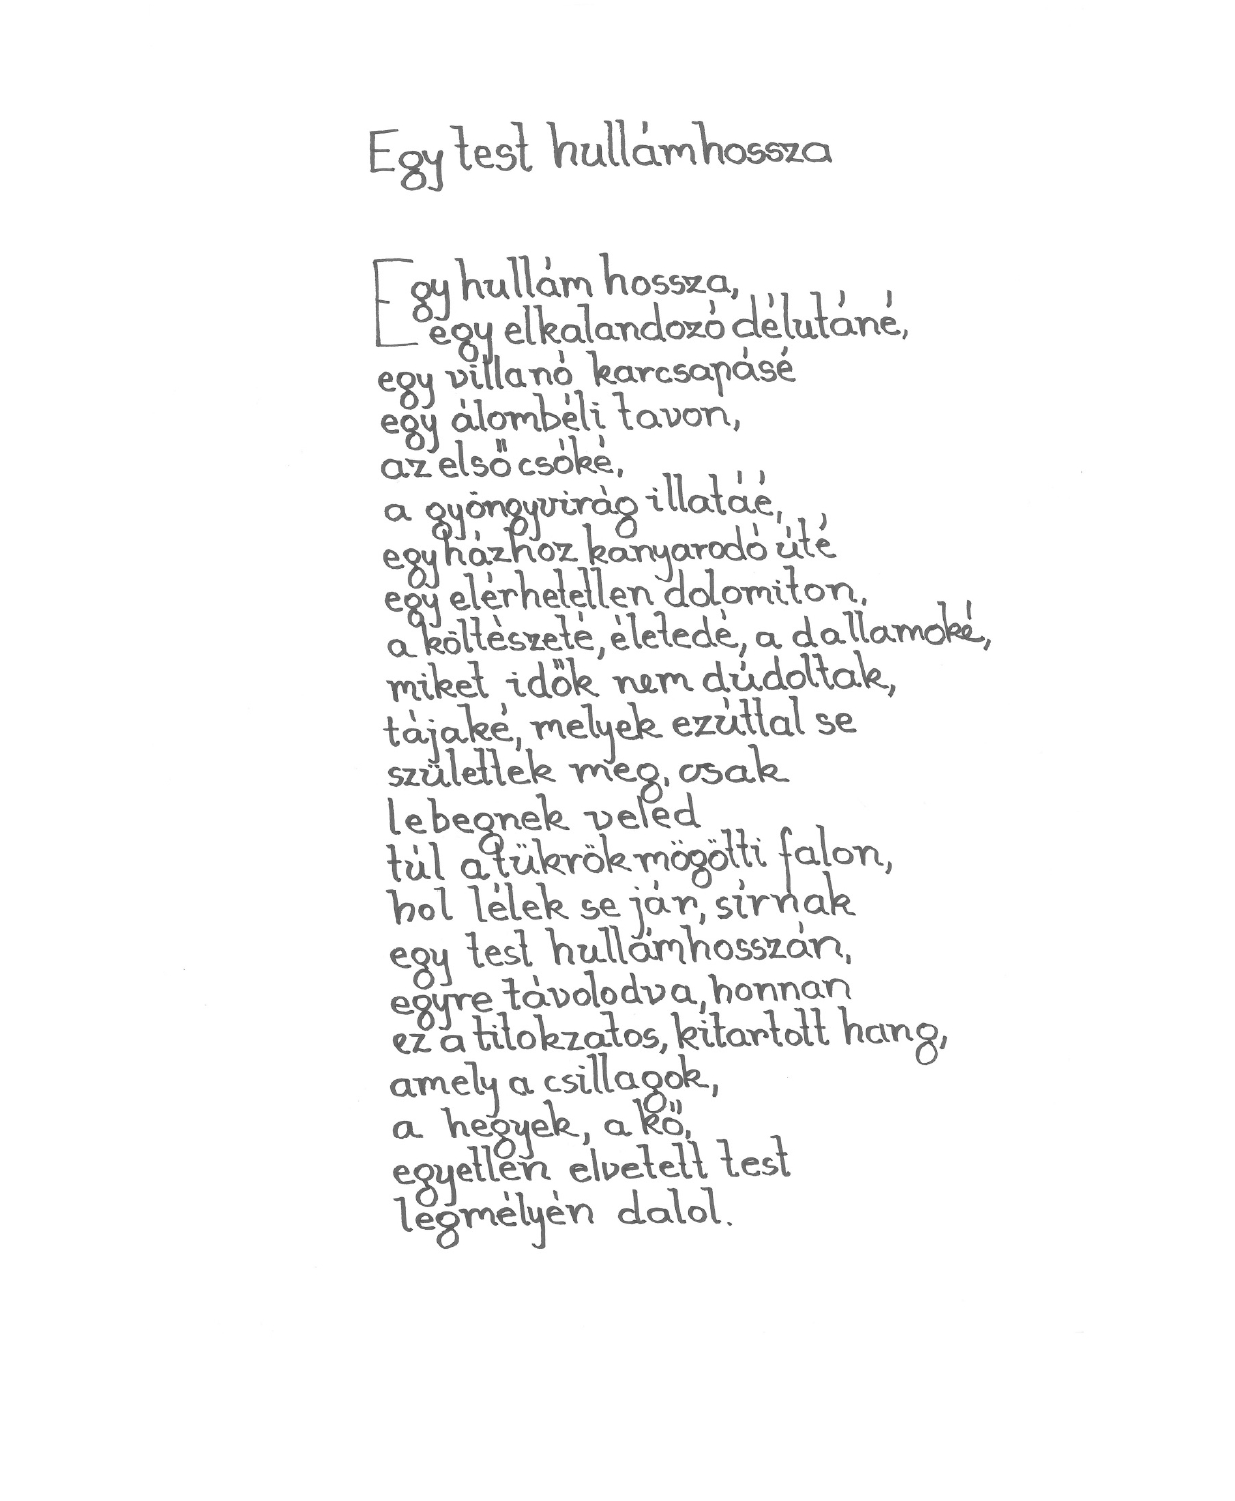 Egy test hullámhossza
Egy hullám hossza,
egy elkalandozó délutáné,
egy villanó karcsapásé
egy álombéli tavon,
az első csóké,
a gyöngyvirág illatáé,
egy házhoz kanyarodó úté
egy elérhetetlen dolomiton,
a költészeté, életedé, a dallamoké,
miket idők nem dúdoltak,
tájaké, melyek ezúttal se
születtek meg, csak
lebegnek veled
túl a tükrök mögötti falon,
hol lélek se jár, sírnak
egy test hullámhosszán,
egyre távolodva, honnan
ez a titokzatos, kitartott hang,
amely a csillagok,
a hegyek, a kő,
egyetlen elvetett test
legmélyén dalol.